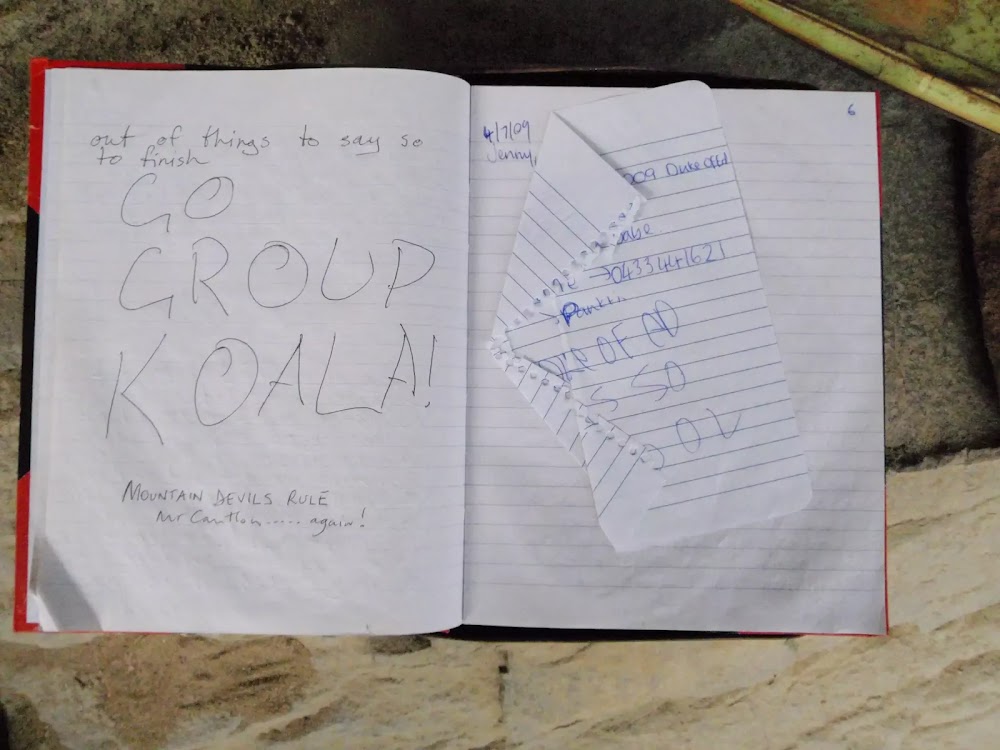 out of things to say so
to finish
GO
GROUP
KOALA!
MOUNTAIN DEVILS RULE
Mr ..... again!
6
4/7/09
Jenny,
009 Duke of Ed
→0433441621
OF ED
SO